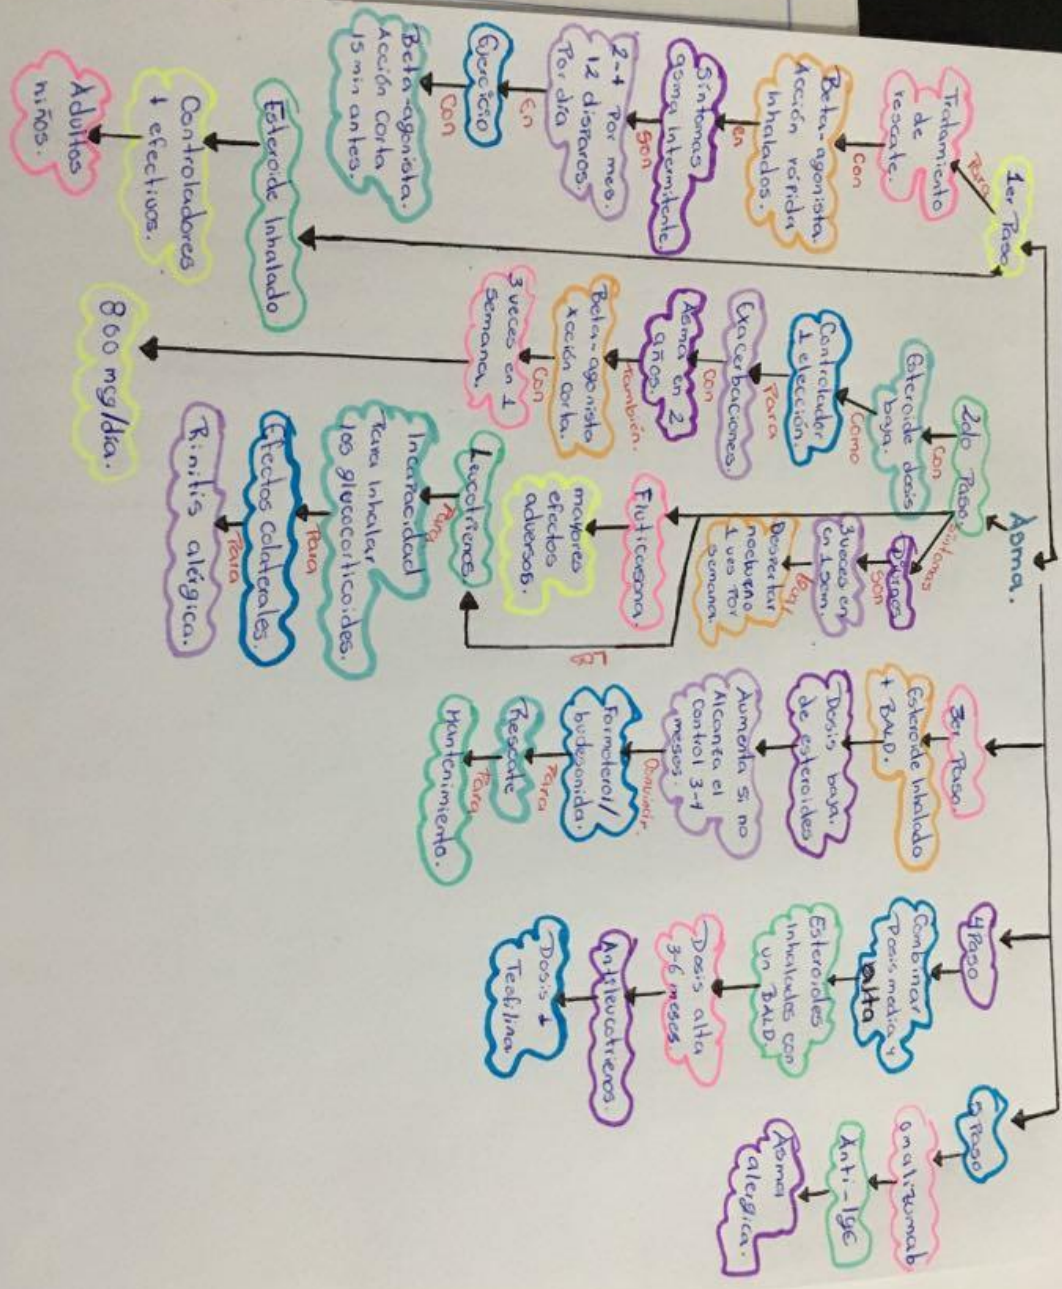 Asma.
1er Paso
Para
Tratamiento
de
rescate.
Con
Beta-agonista
Acción rápida
Inhalados.
en
Síntomas
asma intermitente.
Son
2-4 Por mes.
12 disparos.
Por día
En
Ejercicio
Con
Beta-agonista.
Acción corta
15 min antes.
Esteroide Inhalado
Controladores
+ efectivos.
Adultos
niños.
2do Paso
Con
Esteroide dosis
baja.
Como
Controlador
1 elección.
Para
Exacerbaciones.
con
Asma en 2
años.
también.
Beta-agonista
Acción corta.
Con
3 veces en 1
semana.
800 mcg/día.
Síntomas
Son
3 veces en
en 1 sem.
Despertar
nocturno
1 ves Por
semana.
Fluticasona.
mayores
efectos
adversos.
Leucotrienos.
Para
Incapacidad
Para Inhalar
los glucocorticoides.
Para
Efectos colaterales.
Para
Rinitis alérgica.
3er Paso.
Esteroide Inhalado
+ BALD.
Dosis baja.
de esteroides
Aumenta si no
Alcanza el
Control 3-4
meses.
Formoterol/
budesonida.
Para
Rescate
Para
Mantenimiento.
4 Paso
Combinar
Dosis media y
alta
Esteroides
Inhalados con
un BALD.
Dosis alta
3-6 meses.
Antileucotrienos.
Dosis ↓
Teofilina
5 Paso
omalizumab
Anti-IgE
Asma
alergica.